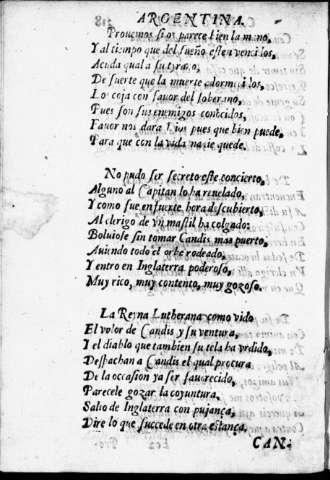 ARGENTINA.
Prouemos si os parece bien la mano,
Y al tiempo que del sueño esten vencidos,
Acuda qual a su
De suerte que la muerte adormidos,
Lo coja con fauor del soberano,
Pues son sus enemigos conocidos,
Fauor nos dara Dios pues que bien puede,
Para que con la vida nadie quede.
No pudo ser secreto este concierto,
Alguno al Capitan lo ha reuelado,
Y como fue en fuerte hora descubierto,
Al clerigo de vn mastil ha colgado:
Boluiose sin tomar Candis mas puerto,
Auiendo todo el orbe rodeado,
Y entro en Inglaterra poderoso,
Muy rico, muy contento, muy gozoso.
La Reyna Lutherana como vido
El valor de Candis y su ventura,
Y el diablo que tambien su tela ha vrdido,
Despachan a Candis el qual procura
De la occasion ya ser fauorecido,
Parecele gozar la coyuntura.
Salio de Inglaterra con pujança,
Dire lo que succede en otra estança.
CAN-